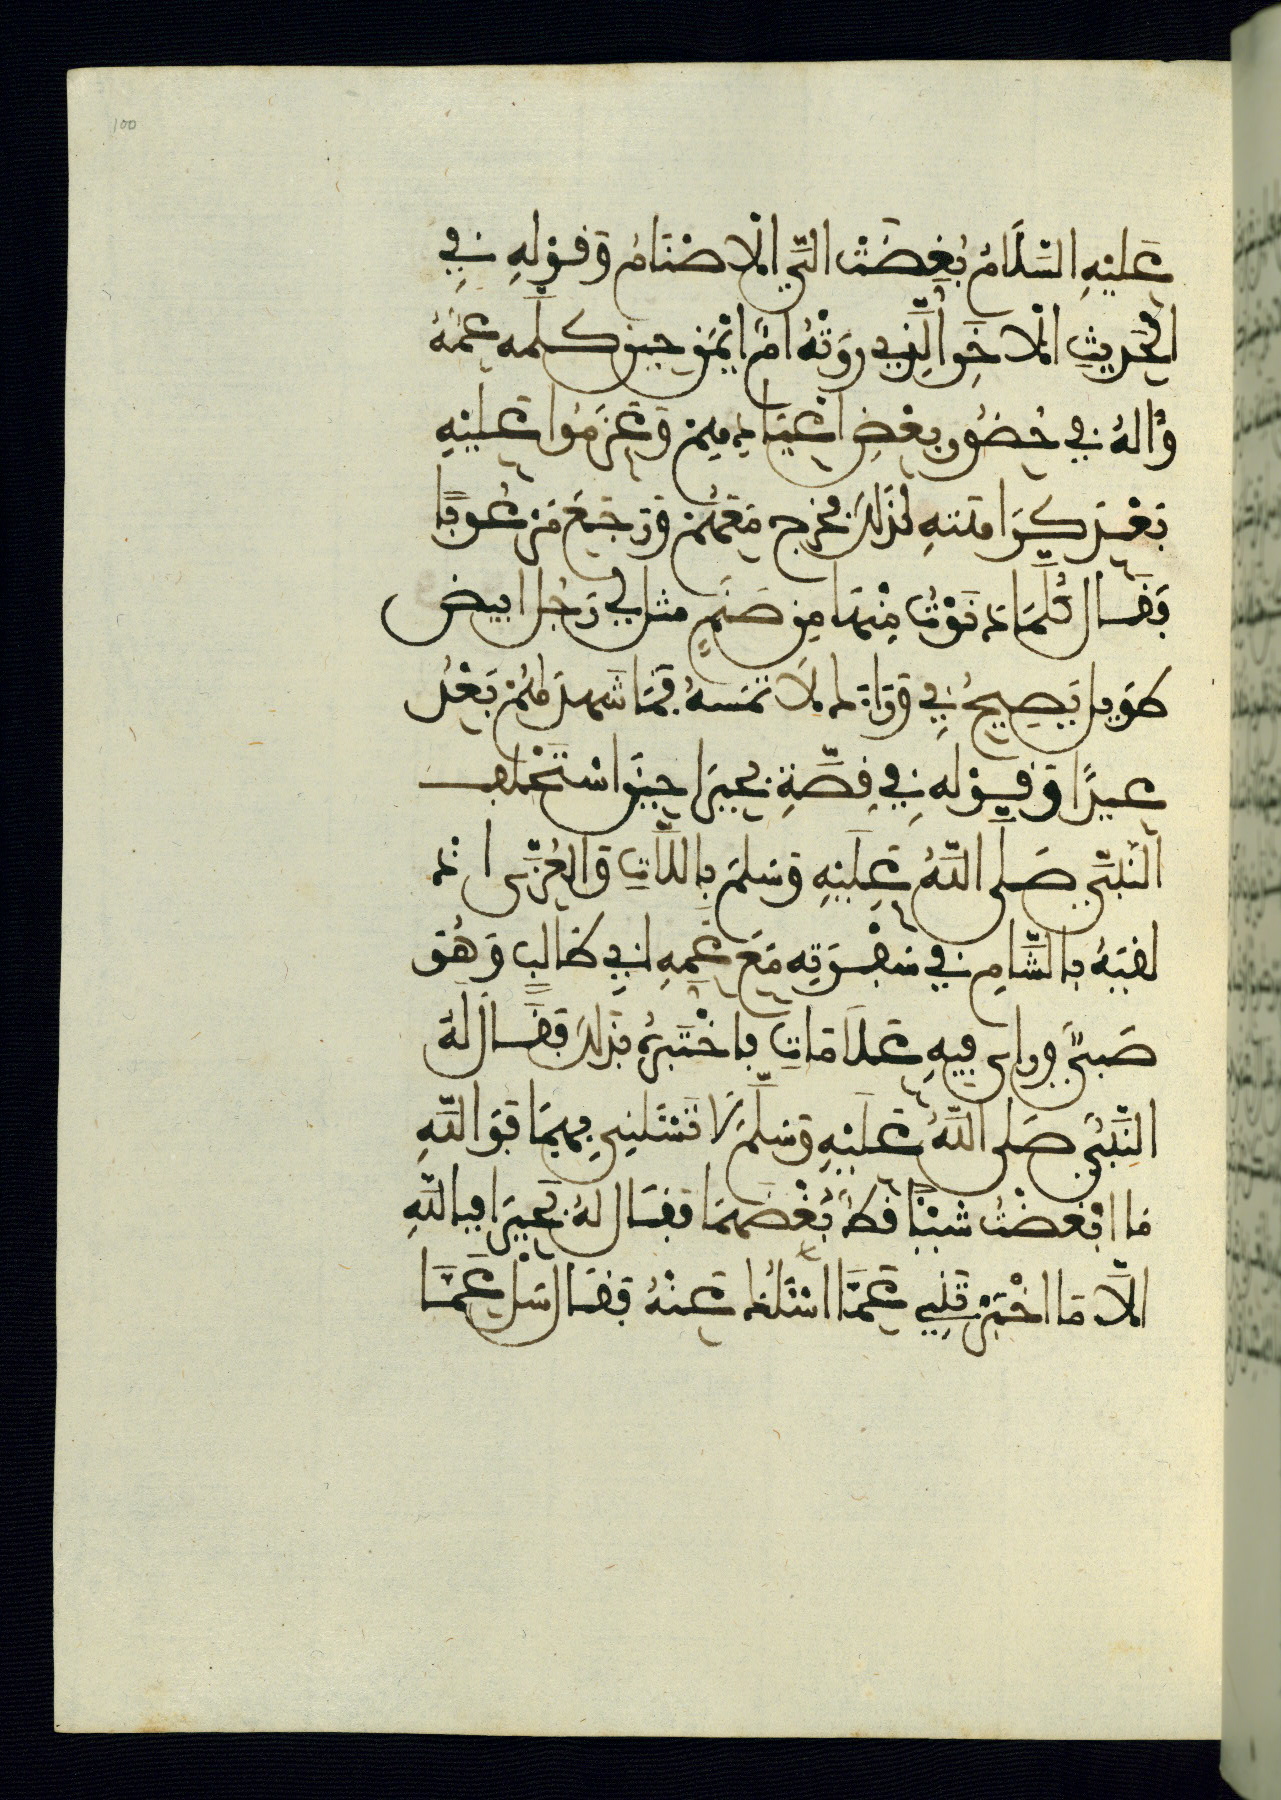 100
عَلَيْهِ السَّلَامُ بُغِضَتْ الَيَّ الْاَصْنَامُ وَقَوْلِهِ فِي
الْحَدِيثِ الْاَخَرِ الَّذِي رَوَتْهُ امُّ ايْمَنَ حِينَ كلّمه عمّهُ
وَءالهُ فِي حُضُورِ بعْضِ اعْيَادِهِمْ وَعَزَمُوا عَلَيْهِ
بَعْدَ كَرَاهَتِهِ لِذَلِكَ فخرج مَعَهُمْ وَرَجَعَ مَرْعُوبًا
فَقَالَ كُلَّمَا دَنَوْتُ مِنْهَا مِن صَنَمٍ مثل لِي رَجُل ابيض
طَوِيل يَصِيحُ بِي وَرَاءَكَ لَا تَمَسهُ فَمَا شَهِدَ لهُمْ بَعْدُ
عيدًا وَقَوْلِهِ فِي قِصَّةِ بَحِيرَا حِينَ اسْتَحْلَف
النَّبِيَّ صَلى اللَّهُ عَلَيْهِ وَسَلمَ بِاللَّاتِ وَالْعُزَّى اذْ
لقيَهُ بالشَّامِ فِي سَفْرَتِهِ مَعَ عَمِهِ ابِي طَالِبٍ وَهُوَ
صَبيٌّ وراى فِيهِ عَلَامَاتِ فاخْتَبَرَهُ بِذَلِكَ فَقَالَ لَهُ
النَّبِيُّ صَلى اللَّهُ عَلَيْهِ وَسَلَّمَ لَا تَسْئَلنِي بِهِمَا فَوَ اللَّهِ
مَا ابْغَضْتُ شَيْئًا قَطُّ بُغْضَهُمَا فَقَالَ لهُ بَحِيرَا فبِاللَّهِ
الَّا مَا اخْبَرْتَنِي عَمَّا اسْئَلُكَ عَنْهُ فَقَالَ سَلْ عَمَّا